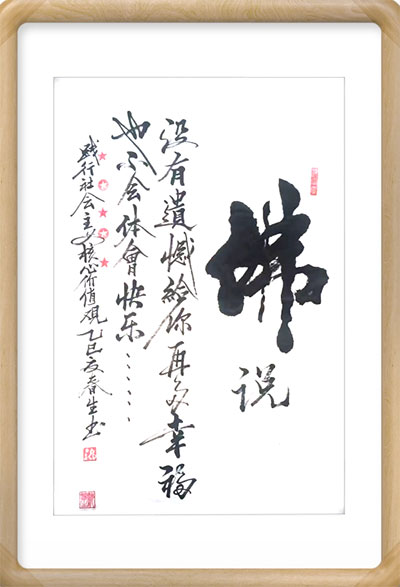 佛说
没有遺憾給你再多幸福
也不会体會快乐......
践行社会主义核心价值观乙巳夏春生书